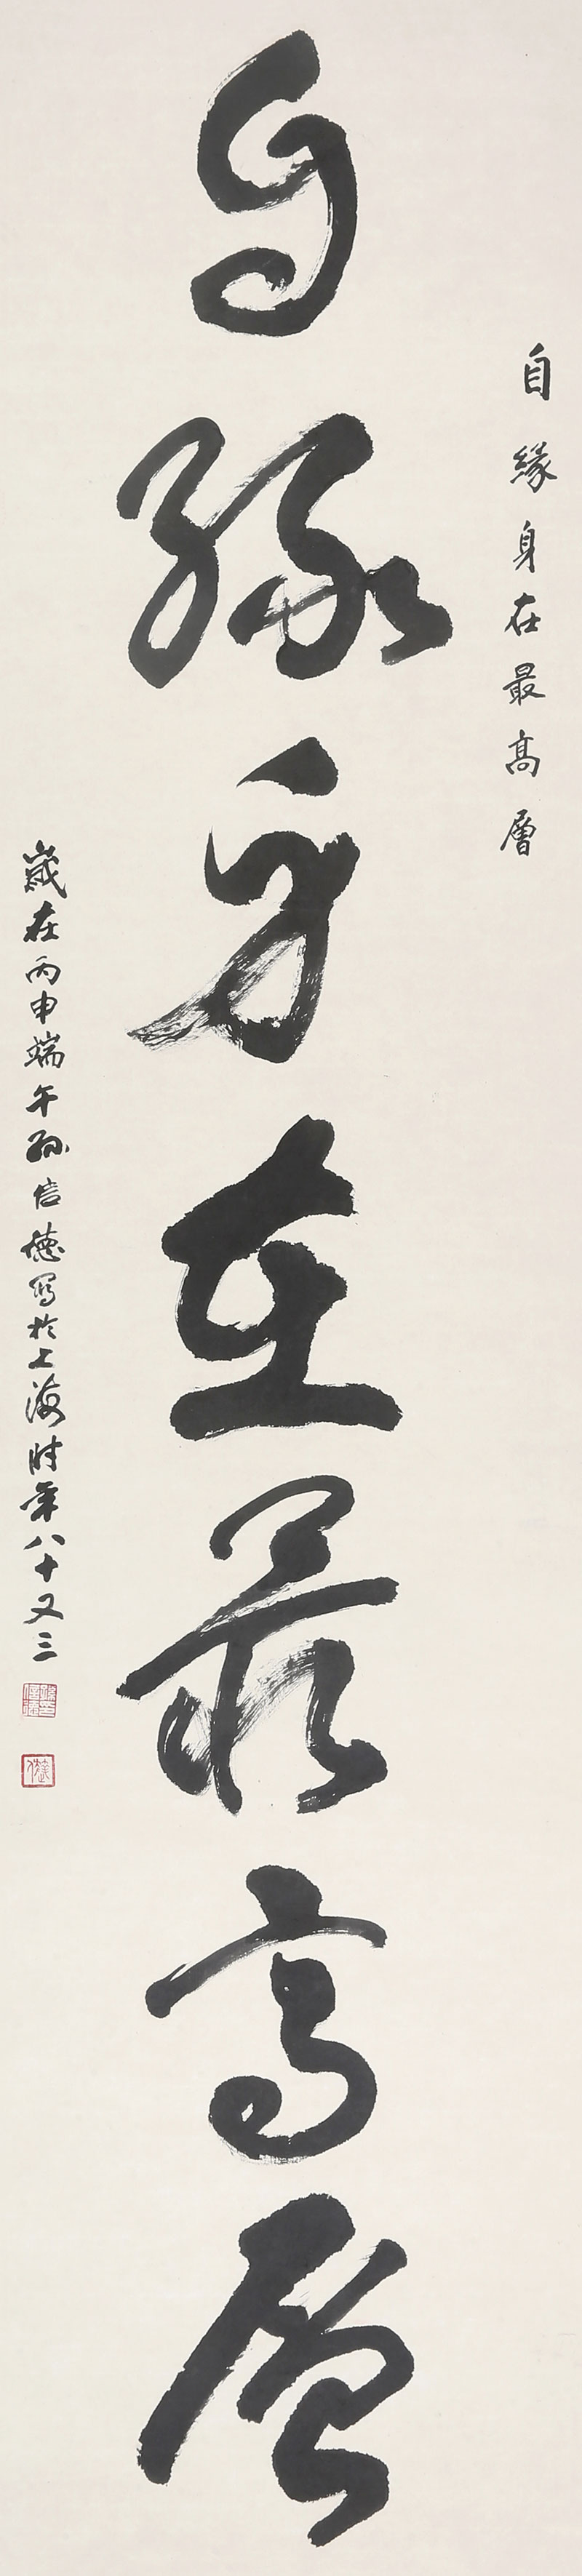 自緣身在最高層
自緣身在最高層
歲在丙申端午孫信德寫於上海時年八十又三